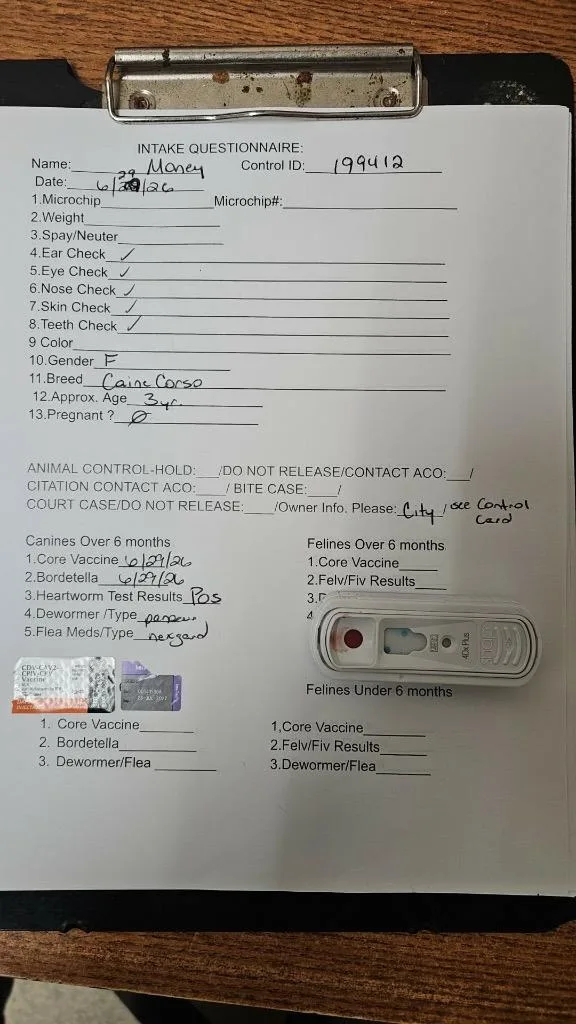 INTAKE QUESTIONNAIRE:
Name: Money Control ID: 199412
Date: 6/29/26
1.Microchip Microchip#:
2.Weight
3.Spay/Neuter
4.Ear Check ✓
5.Eye Check ✓
6.Nose Check ✓
7.Skin Check ✓
8.Teeth Check ✓
9 Color
10.Gender F
11.Breed Caine Corso
12.Approx. Age 3yr.
13.Pregnant ? Ø
ANIMAL CONTROL-HOLD: /DO NOT RELEASE/CONTACT ACO: /
CITATION CONTACT ACO: / BITE CASE: /
COURT CASE/DO NOT RELEASE: /Owner Info. Please: City / see Control Card
Canines Over 6 months
1.Core Vaccine 6/29/26
2.Bordetella 6/29/26
3.Heartworm Test Results Pos
4.Dewormer /Type
5.Flea Meds/Type nexgard
Felines Over 6 months
1.Core Vaccine
2.Felv/Fiv Results
3.
4
4Dx Plus
CDV-CAV2-
CPIV-CPV
Vaccine
Felines Under 6 months
1. Core Vaccine
2. Bordetella
3. Dewormer/Flea
1,Core Vaccine
2.Felv/Fiv Results
3.Dewormer/Flea